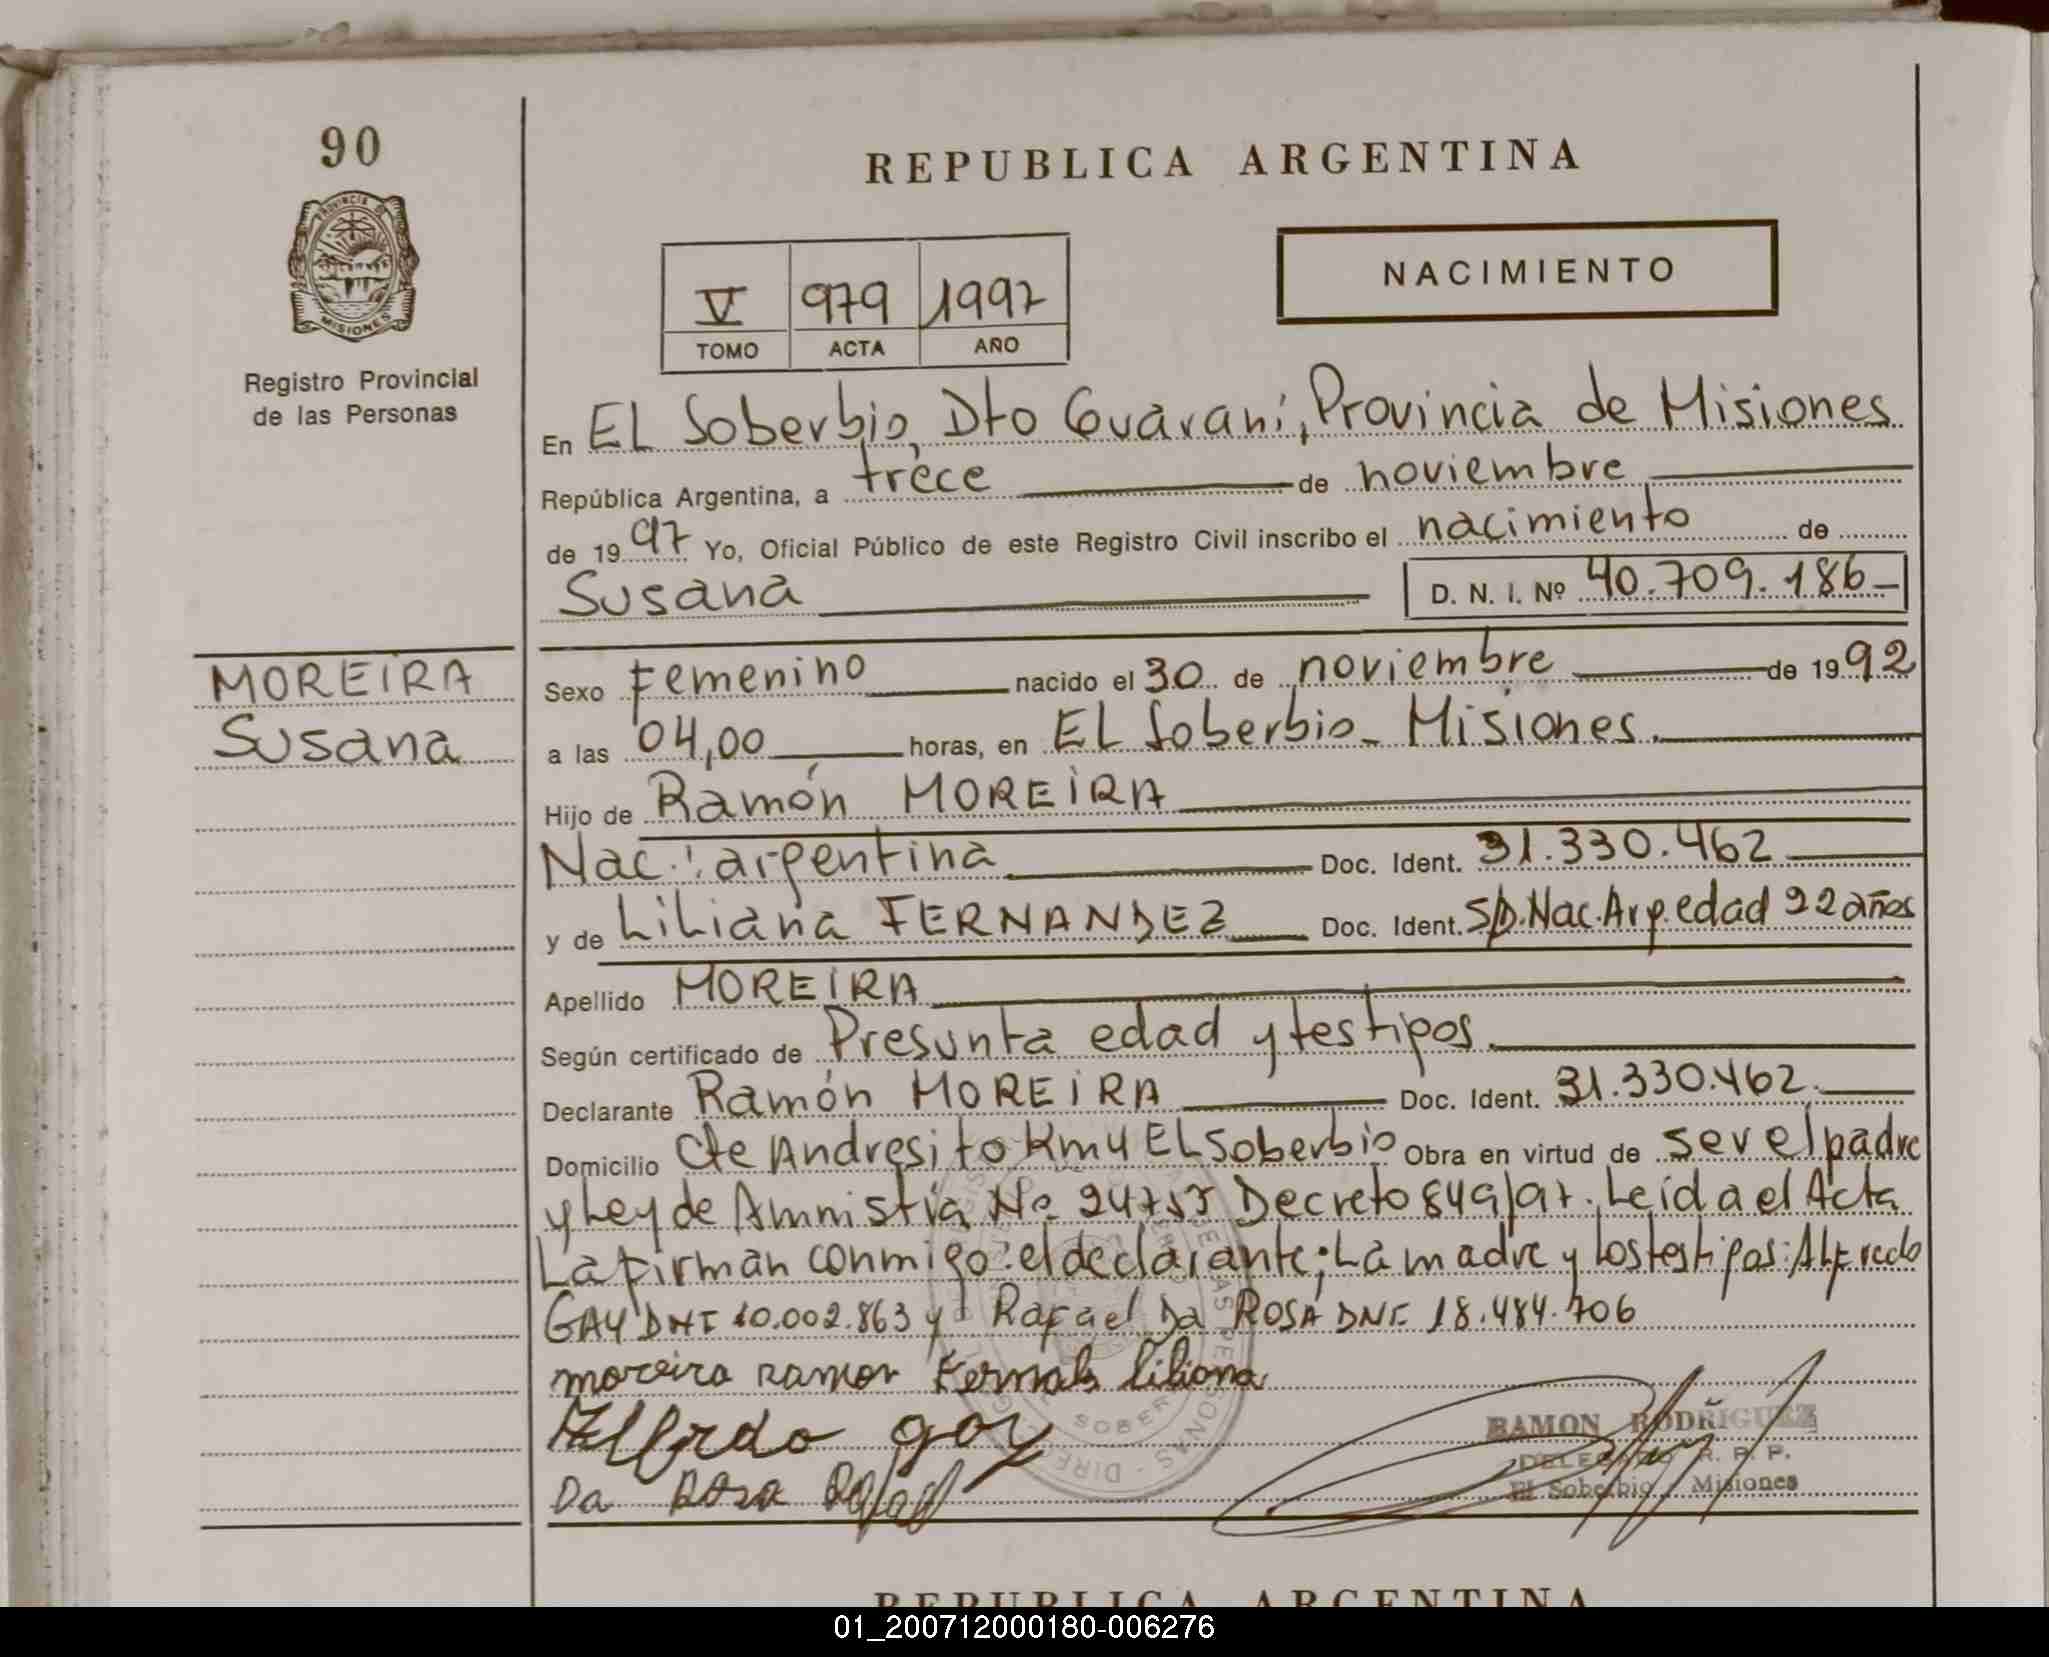 90
REPUBLICA ARGENTINA
PROVINCIA DE
MISIONES
Registro Provincial
de las Personas
NACIMIENTO
V 979 1997
TOMO ACTA AÑO
En EL Soberbio, Dto Guaraní, Provincia de Misiones
República Argentina, a trece de noviembre
de 1997 Yo, Oficial Público de este Registro Civil inscribo el nacimiento de
Susana D. N. I. Nº 40.709.186
MOREIRA
Susana
Sexo Femenino nacido el 30 de noviembre de 1992
a las 04,00 horas, en EL Soberbio - Misiones.
Hijo de Ramón MOREIRA
Nac.: argentina Doc. Ident. 31.330.462
y de Liliana FERNANDEZ Doc. Ident. S/D. Nac. Arg. edad 22 años
Apellido MOREIRA
Según certificado de Presunta edad y testigos.
Declarante Ramón MOREIRA Doc. Ident. 31.330.462.
Domicilio Cte Andresito Km 4 EL Soberbio Obra en virtud de ser el padre
y Ley de Amnistía No 24755 Decreto 849/97. Leída el Acta
La firman conmigo: el declarante; La madre y los testigos: Alfredo
GAY DNI 10.002.863 y Rafael Da ROSA DNI. 18.484.706
moreira ramon Liliana
goy
Da Rosa
RAMON RODRIGUEZ
DELEGADO R. P. P.
El Soberbio - Misiones
REPUBLICA ARGENTINA
01_200712000180-006276